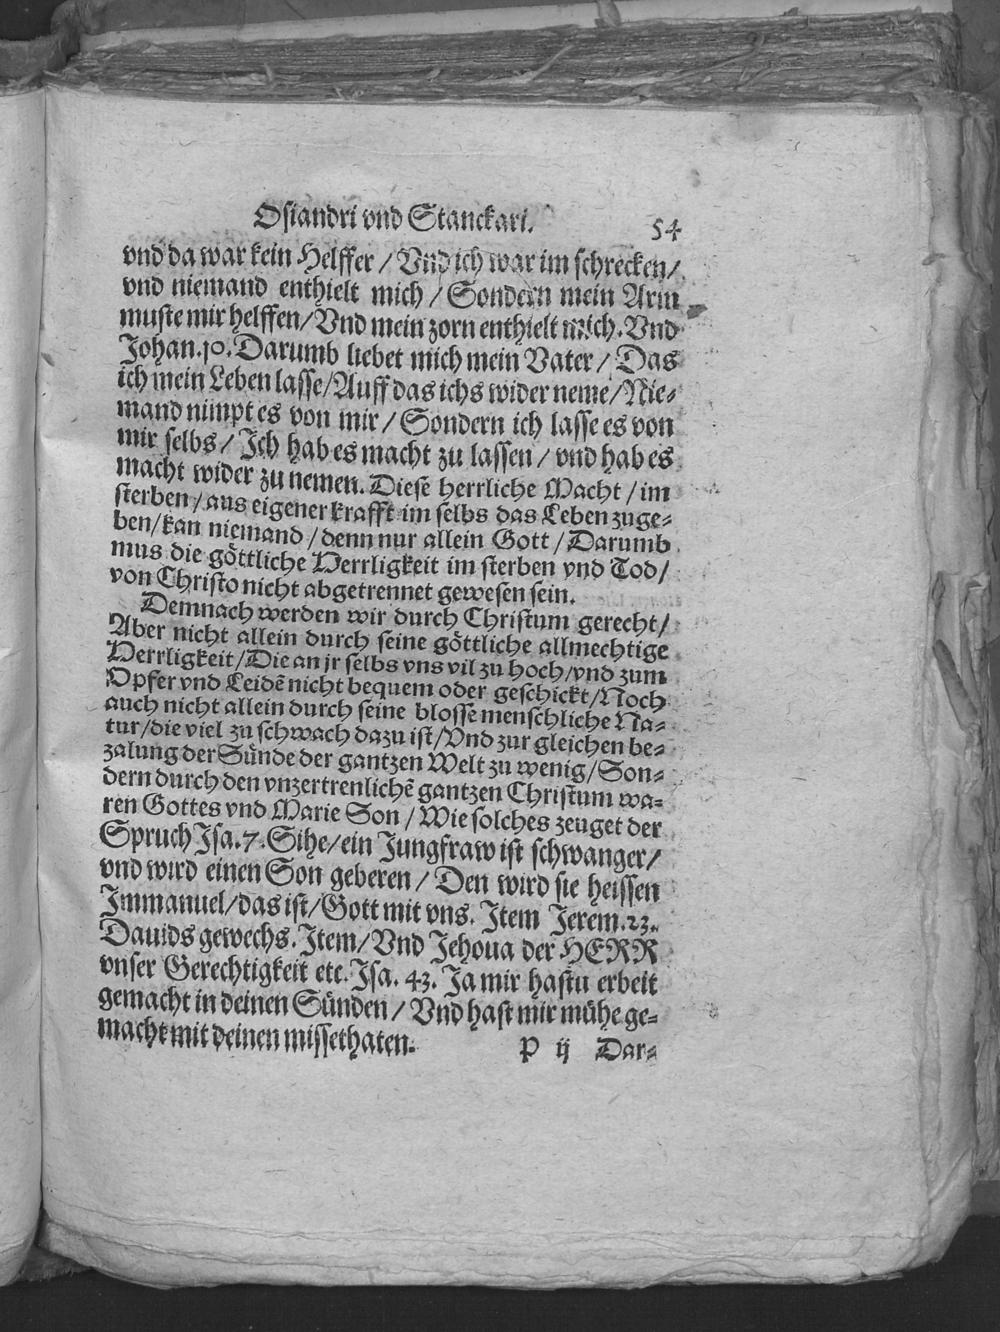 Osiandri vnd Stanckari. 54
vnd da war kein Helffer / Vnd ich war im schrecken /
vnd niemand enthielt mich / Sondern mein Arm
muste mir helffen / Vnd mein zorn enthielt mich. Vnd
Johan. 10. Darumb liebet mich mein Vater / Das
ich mein Leben lasse / Auff das ichs wider neme / Nie⸗
mand nimpt es von mir / Sondern ich lasse es von
mir selbs / Ich hab es macht zu lassen / vnd hab es
macht wider zu nemen. Diese herrliche Macht / im
sterben / aus eigener krafft im selbs das Leben zuge⸗
ben / kan niemand / denn nur allein Gott / Darumb
mus die göttliche Herrligkeit im sterben vnd Tod /
von Christo nicht abgetrennet gewesen sein.
Demnach werden wir durch Christum gerecht /
Aber nicht allein durch seine göttliche allmechtige
Herrligkeit / Die an jr selbs vns vil zu hoch / vnd zum
Opfer vnd Leidē nicht bequem oder geschickt / Noch
auch nicht allein durch seine blosse menschliche Na⸗
tur / die viel zu schwach dazu ist / Vnd zur gleichen be⸗
zalung der Sünde der gantzen Welt zu wenig / Son⸗
dern durch den vnzertrenlichē gantzen Christum wa⸗
ren Gottes vnd Marie Son / Wie solches zeuget der
Spruch Isa. 7. Sihe / ein Jungfraw ist schwanger /
vnd wird einen Son geberen / Den wird sie heissen
Immanuel / das ist / Gott mit vns. Item Jerem. 23.
Dauids gewechs. Item / Vnd Jehoua der HERR
vnser Gerechtigkeit etc. Isa. 43. Ja mir hastu erbeit
gemacht in deinen Sünden / Vnd hast mir mühe ge⸗
macht mit deinen missethaten.
P ij Dar⸗